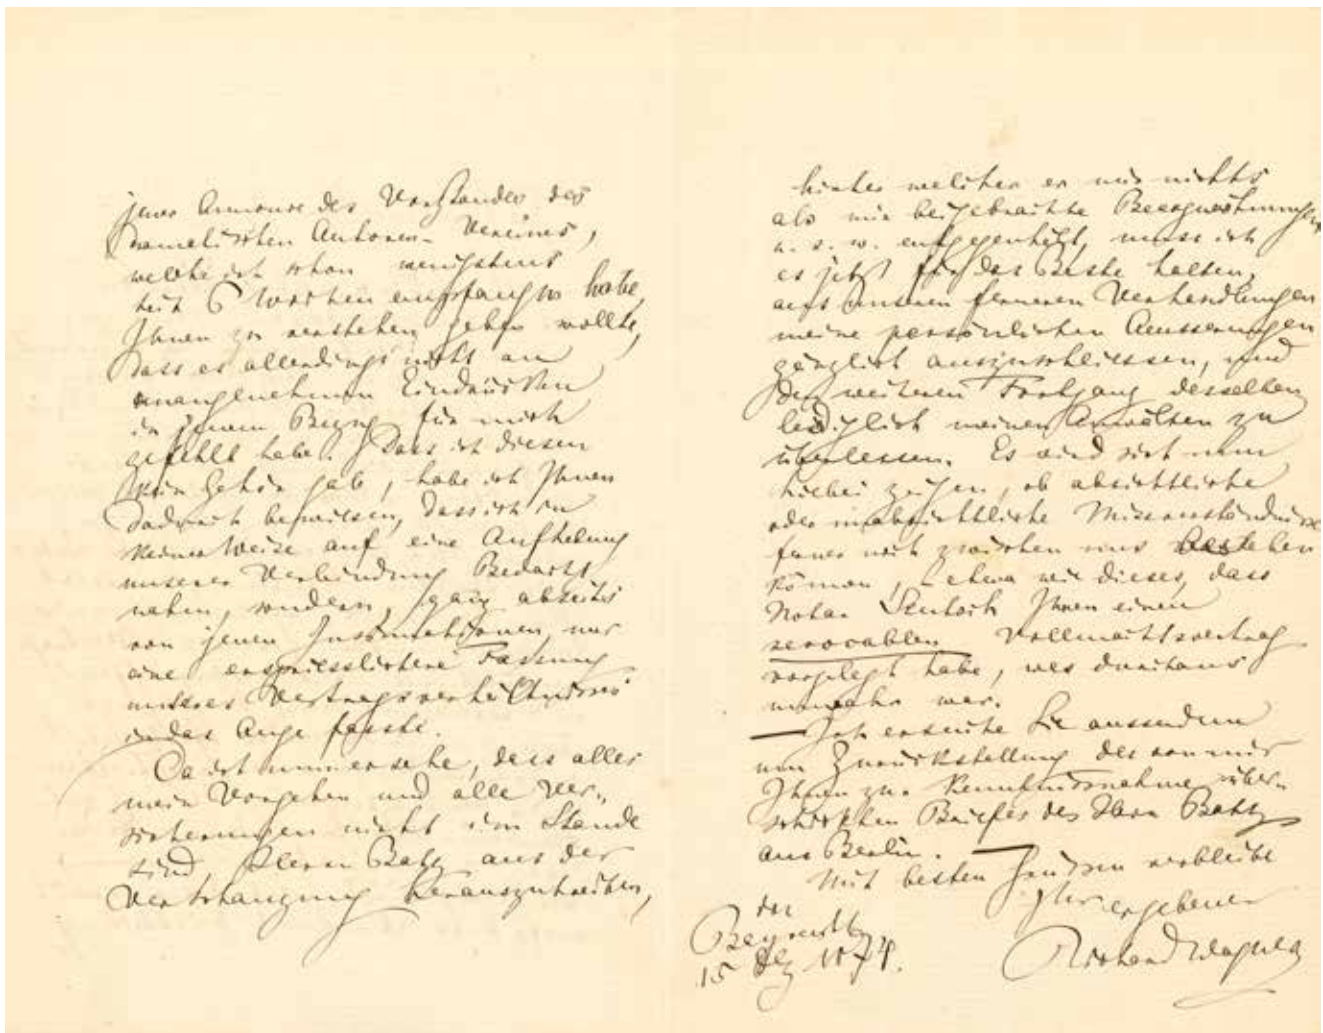 jener Annonce des Vorstandes des
dramatischen Autoren-Vereines,
welche ich schon wenigstens
seit 6 Wochen empfangen habe,
Ihnen zu verstehen geben wollte,
dass es allerdings nicht an
unangenehmen Eindrücken
in jenem Bezug für mich
gefehlt habe. Dass ich diesen
kein Gehör gab, habe ich Ihnen
dadurch bewiesen, dass ich in
keiner Weise auf eine Aufhebung
unserer Verbindung Bedacht
nahm, sondern, ganz abseits
von jenen Insinuationen, nur
eine erspriesslichere Fassung
unseres Vertragsverhältnisses
in das Auge fasste.
Da ich nun ersehe, dass alles
mein Vorgehen und alle Ver-
sicherungen nicht im Stande
sind, Herrn Batz aus der
Verschanzung herauszutreiben,
hinter welcher er mir nichts
als mir beigebrachte Beargwöhnungen
u. s. w. entgegenhält, muss ich
es jetzt für das Beste halten,
aus unseren ferneren Verhandlungen
meine persönlichen Aeusserungen
gänzlich auszuschliessen, und
den weiteren Fortgang derselben
lediglich meinen Anwälten zu
überlassen. Es wird sich nun
hiebei zeigen, ob absichtliche
oder unabsichtliche Missverständnisse
ferner noch zwischen uns bestehen
können, etwa wie dieses, dass
Notar Skutsch Ihnen einen
revocablen Vollmachtsvertrag
vorgelegt habe, was durchaus
unwahr war.
— Ich ersuche Sie ausserdem
um Zurückstellung des von mir
Ihnen zur Kenntnissnahme über-
schickten Briefes des Herrn Batz
aus Berlin. —
Mit besten Grüssen verbleibe
Ihr ergebener
Richard Wagner
Bayreuth
15 Dez 1874.